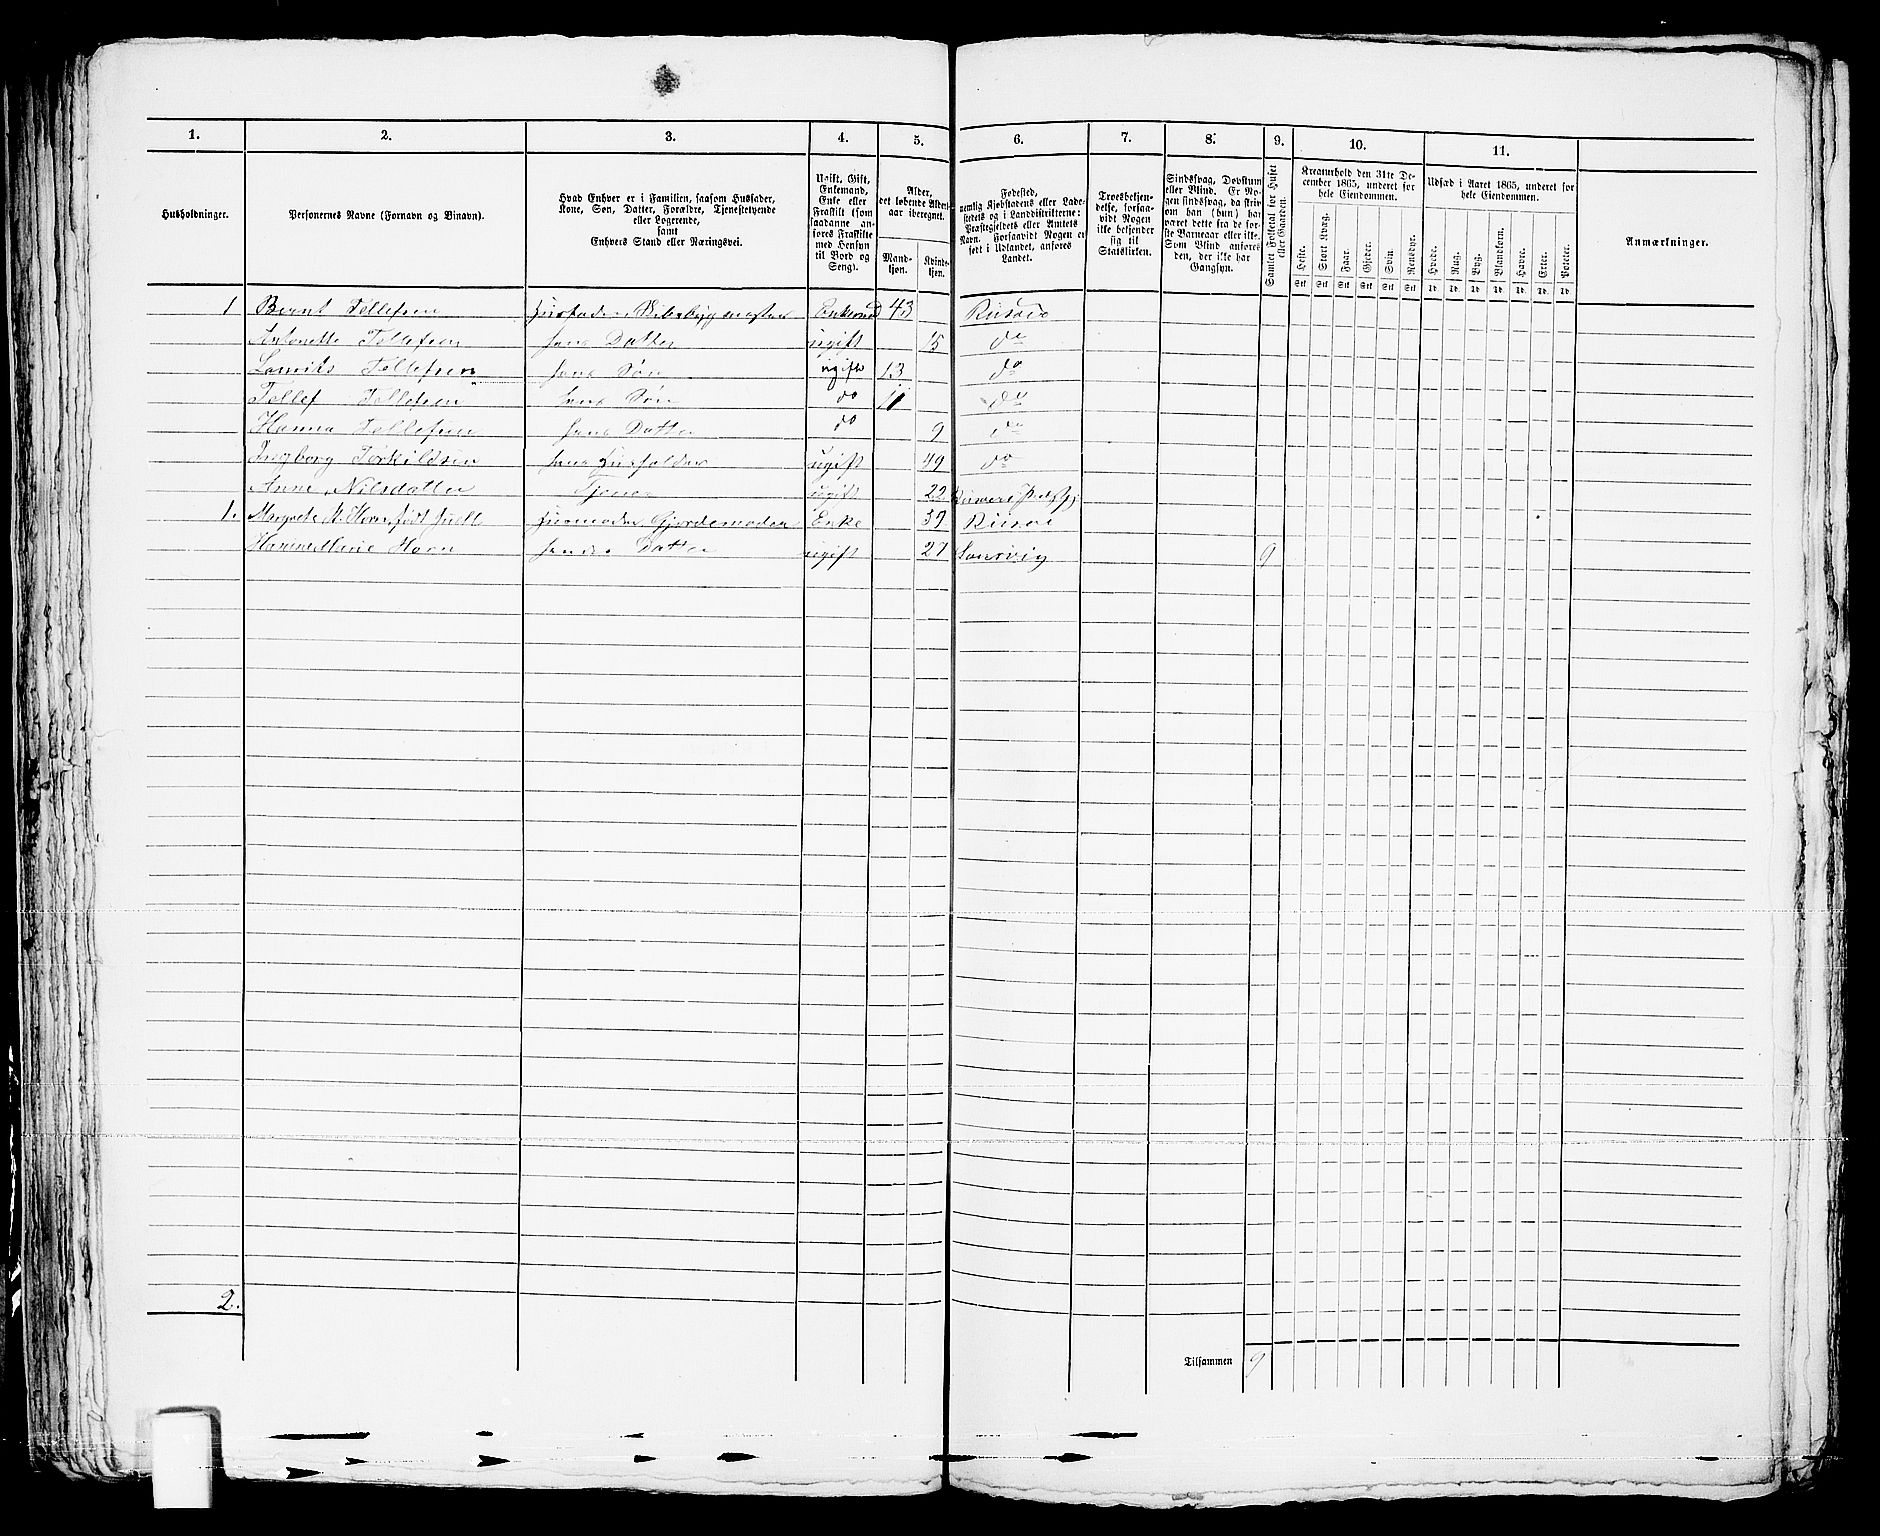 1. 2. 3. 4. 5. 6. 7. 8. 9. 10. 11.
Husholdninger.
Personernes Navne (Fornavn og Binavn).
Hvad Enhver er i Familien, saasom Husfader,
Kone, Søn, Datter, Forældre, Tjenestetyende
eller Logerende,
samt
Enhvers Stand eller Næringsvei.
Ugift, Gift,
Enkemand,
Enke eller
Fraskilt (som
saadanne an-
føres Fraskilte
med Hensyn
til Bord og
Seng).
Alder,
det løbende Alders-
aar iberegnet.
Mand-
kjøn.
Kvinde-
kjøn.
Fødested,
nemlig Kjøbstadens eller Lade-
stedets og i Landdistrikterne:
Præstegjeldets eller Amtets
Navn. Forsaavidt Nogen er
født i Udlandet, anføres
Landet.
Troesbekjen-
delse, forsaa-
vidt Nogen
ikke bekjender
sig til
Statskirken.
Sindssvag, Døvstum
eller Blind. Er No-
gen sindssvag, da skriv
om han (hun) har
været dette fra de før-
ste Barneaar eller ikke.
Som Blind anføres
den, der ikke har
Gangsyn.
Samlet Folketal for Huset
eller Gaarden.
Kreaturhold den 31te De-
cember 1865, underet for
hele Eiendommen.
Heste. Stort Kvæg. Faar. Gjeder. Svin. Rensdyr.
Stk Stk Stk Stk Stk Stk
Udsæd i Aaret 1865, underet for
hele Eiendommen.
Hvede. Rug. Byg. Blandkorn. Havre. Erter. Poteter.
Td. Td. Td. Td. Td. Td. Td.
Anmærkninger.
1 Bernt Tellefsen Husfader Skibsbygmester Enkemd 43 Risøer
Antonette Tellefsen hans Datter ugift 15 do
Tellefsen hans Søn ugift 13 do
Tellef Tellefsen hans Søn do 11 do
Hanna Tellefsen hans Datter do 9 do
Ingborg Torkildsen hans Husholder ugift 49 do
Anne Nilsdatter Tjener ugift 22
1. Margrete M. Horn født Juell Husmoder Gjordemoder Enke Risøer
Hanne Marie Horn hendes Datter ugift 27 Laurvig 9
2.
Tilsammen 9